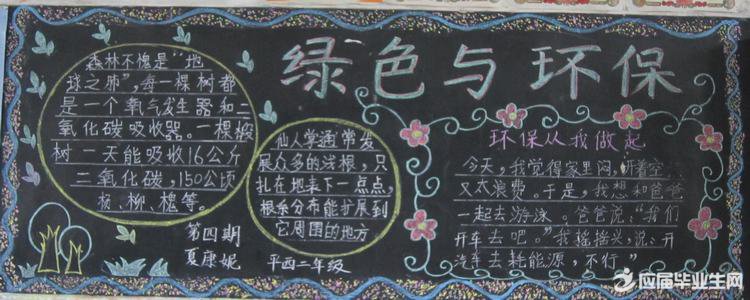 绿色与环保
森林不愧是“地
球之肺”,每一棵树都
是一个氧气发生器和二
氧化碳吸收器。一棵椴
树一天能吸收16公斤
二氧化碳,150公顷
杨、柳、槐等。
仙人掌通常发
展众多的浅根,只
扎在地表下一点点,
根系分布能扩展到
它周围的地方
第四期
夏康妮
平西二年级
环保从我做起
今天,我觉得家里闷,开着空
又太浪费。于是,我想和爸爸
一起去游泳。爸爸说:“我们
开车去吧。”我摇摇头,说:开
汽车去耗能源,不行”
应届毕业生网